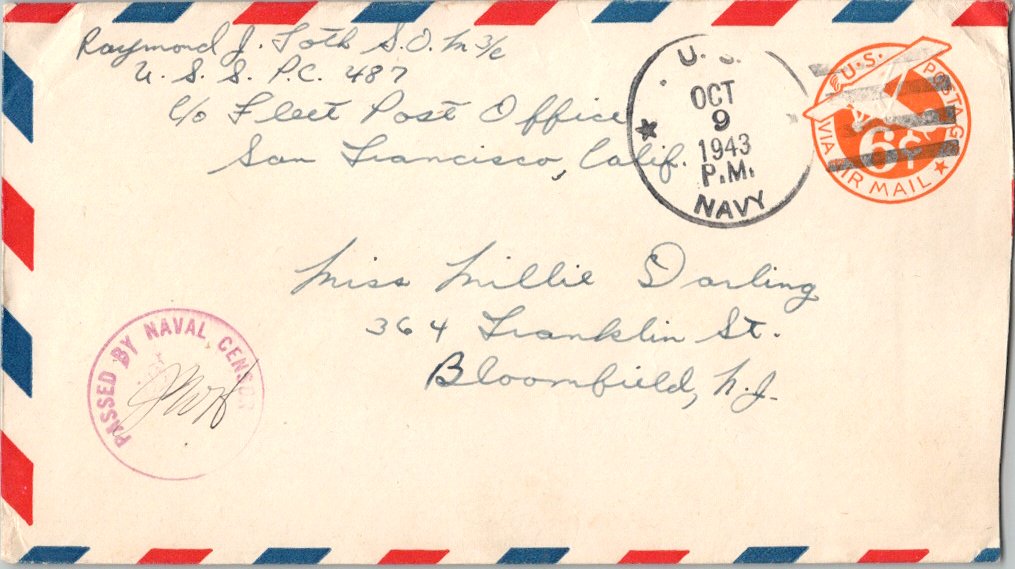 Raymond J. Toth S.O.M 3/c
U. S. S. P.C. 487
c/o Fleet Post Office
San Francisco, Calif.
U. S.
OCT
9
1943
P.M.
NAVY
U.S. POSTAGE
6¢
VIA AIR MAIL
Miss Millie Darling
364 Franklin St.
Bloomfield, N.J.
PASSED BY NAVAL CENSOR